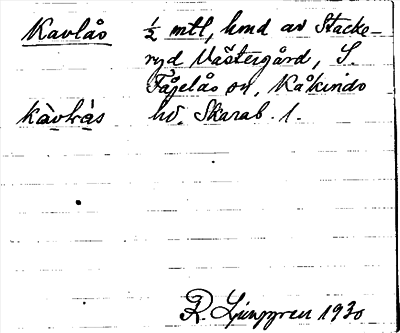 Kavlås ½ mtl, hmd av Stacke-
ryd Västergård, S.
Fågelås sn, Kåkinds
kàvlràs hd. Skarab. l.
R. Ljunggren 1930